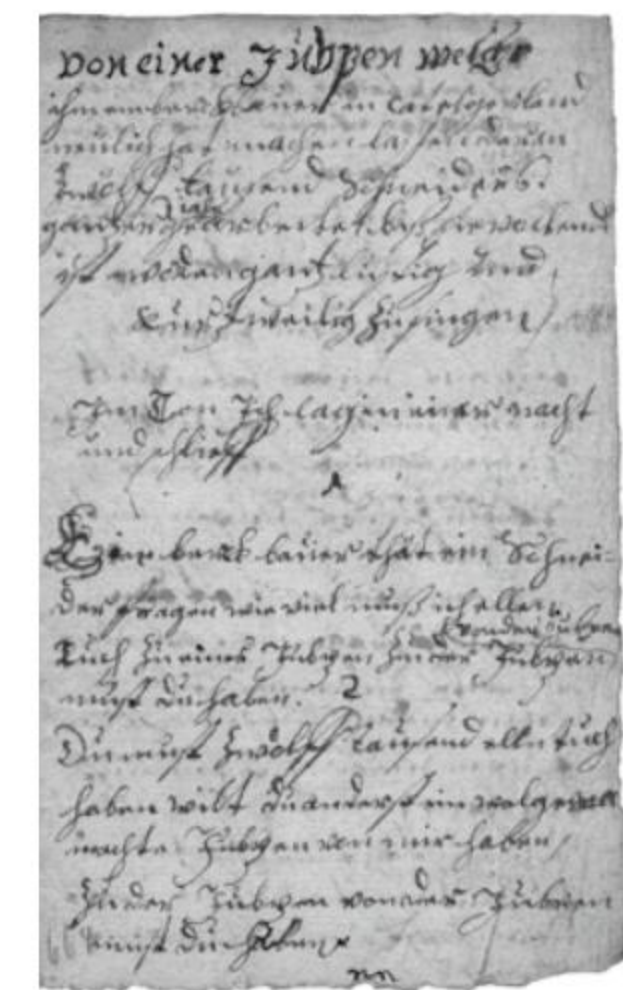 Von einer Jübpen welche
ihm ein berckbauer in
neulich hat machen lassen daran
zwölff tausend Schneiders
gantzer gearbeitet biß sie vollend
ist worden gantz lustig und
kurtzweilig zu singen
Im Ton Ich lag in einer nacht
und schlieff
1
Ein berck bauer thät ein Schnei-
der fragen wie viel muß ich ellen
von der Jubpen
Tuch zu einer Jubpen zu der Jubpen
must du haben. 2
Du must zwölff tausend elln tuch
haben wilt du anderst ein wolge
machte Jubpen von mir haben
zu der Jubpen von der Jubpen
must du haben